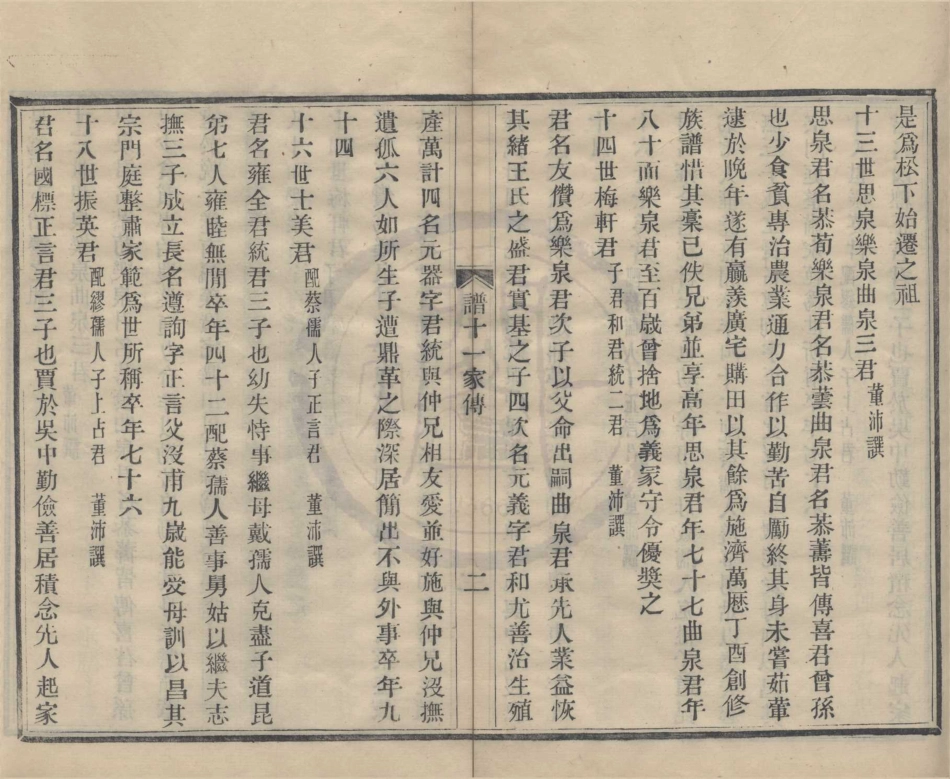 是爲松下始遷之祖
十三世思泉樂泉曲泉三君 董沛譔
思泉君名恭荀樂泉君名恭蕓曲泉君名恭壽皆傳喜君曾孫
也少食貧專治農業通力合作以勤苦自勵終其身未嘗茹葷
逮於晚年遂有贏羨廣宅購田以其餘爲施濟萬厯丁酉創修
族譜惜其稾已佚兄弟並享高年思泉君年七十七曲泉君年
八十而樂泉君至百歲曾捨地爲義冢守令優奬之
十四世梅軒君 子君和君統二君 董沛譔
君名友儹爲樂泉君次子以父命出嗣曲泉君承先人業益恢
其緒王氏之盛君實基之子四次名元義字君和尤善治生殖
譜十一家傳 二
產萬計四名元器字君統與仲兄相友愛並好施與仲兄沒撫
遺孤六人如所生子遭鼎革之際深居簡出不與外事卒年九
十四
十六世士美君 配蔡儒人子正言君 董沛譔
君名雍全君統君三子也幼失恃事繼母戴孺人克盡子道昆
弟七人雍睦無閒卒年四十二配蔡孺人善事舅姑以繼夫志
撫三子成立長名遵詢字正言父沒甫九歲能受母訓以昌其
宗門庭整肅家範爲世所稱卒年七十六
十八世振英君 配繆孺人子上占君 董沛譔
君名國標正言君三子也賈於吳中勤儉善居積念先人起家